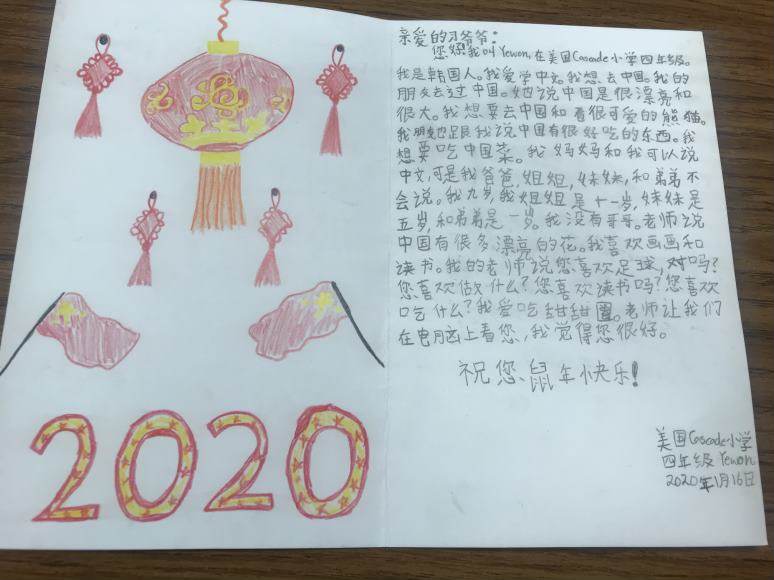 亲爱的习爷爷:
您好我叫Yewon,在美国Cascade小学四年级。
我是韩国人。我爱学中文。我想去中国。我的
朋友去过中国。她说中国是很漂亮和
很大。我想要去中国和看很可爱的熊猫。
我朋友也跟我说中国有很好吃的东西。我
想要吃中国菜。我妈妈和我可以说
中文,可是我爸爸,姐姐,妹妹,和弟弟不
会说。我九岁,我姐姐是十一岁,妹妹是
五岁,和弟弟是一岁。我没有哥哥。老师说
中国有很多漂亮的花。我喜欢画画和
读书。我的老师说您喜欢足球,对吗?
您喜欢做什么?您喜欢读书吗?您喜欢
吃什么?我爱吃甜甜圈。老师让我们
在电脑上看您,我觉得您很好。
祝您鼠年快乐!
2020
美国Cascade小学
四年级 Yewon
2020年1月16日